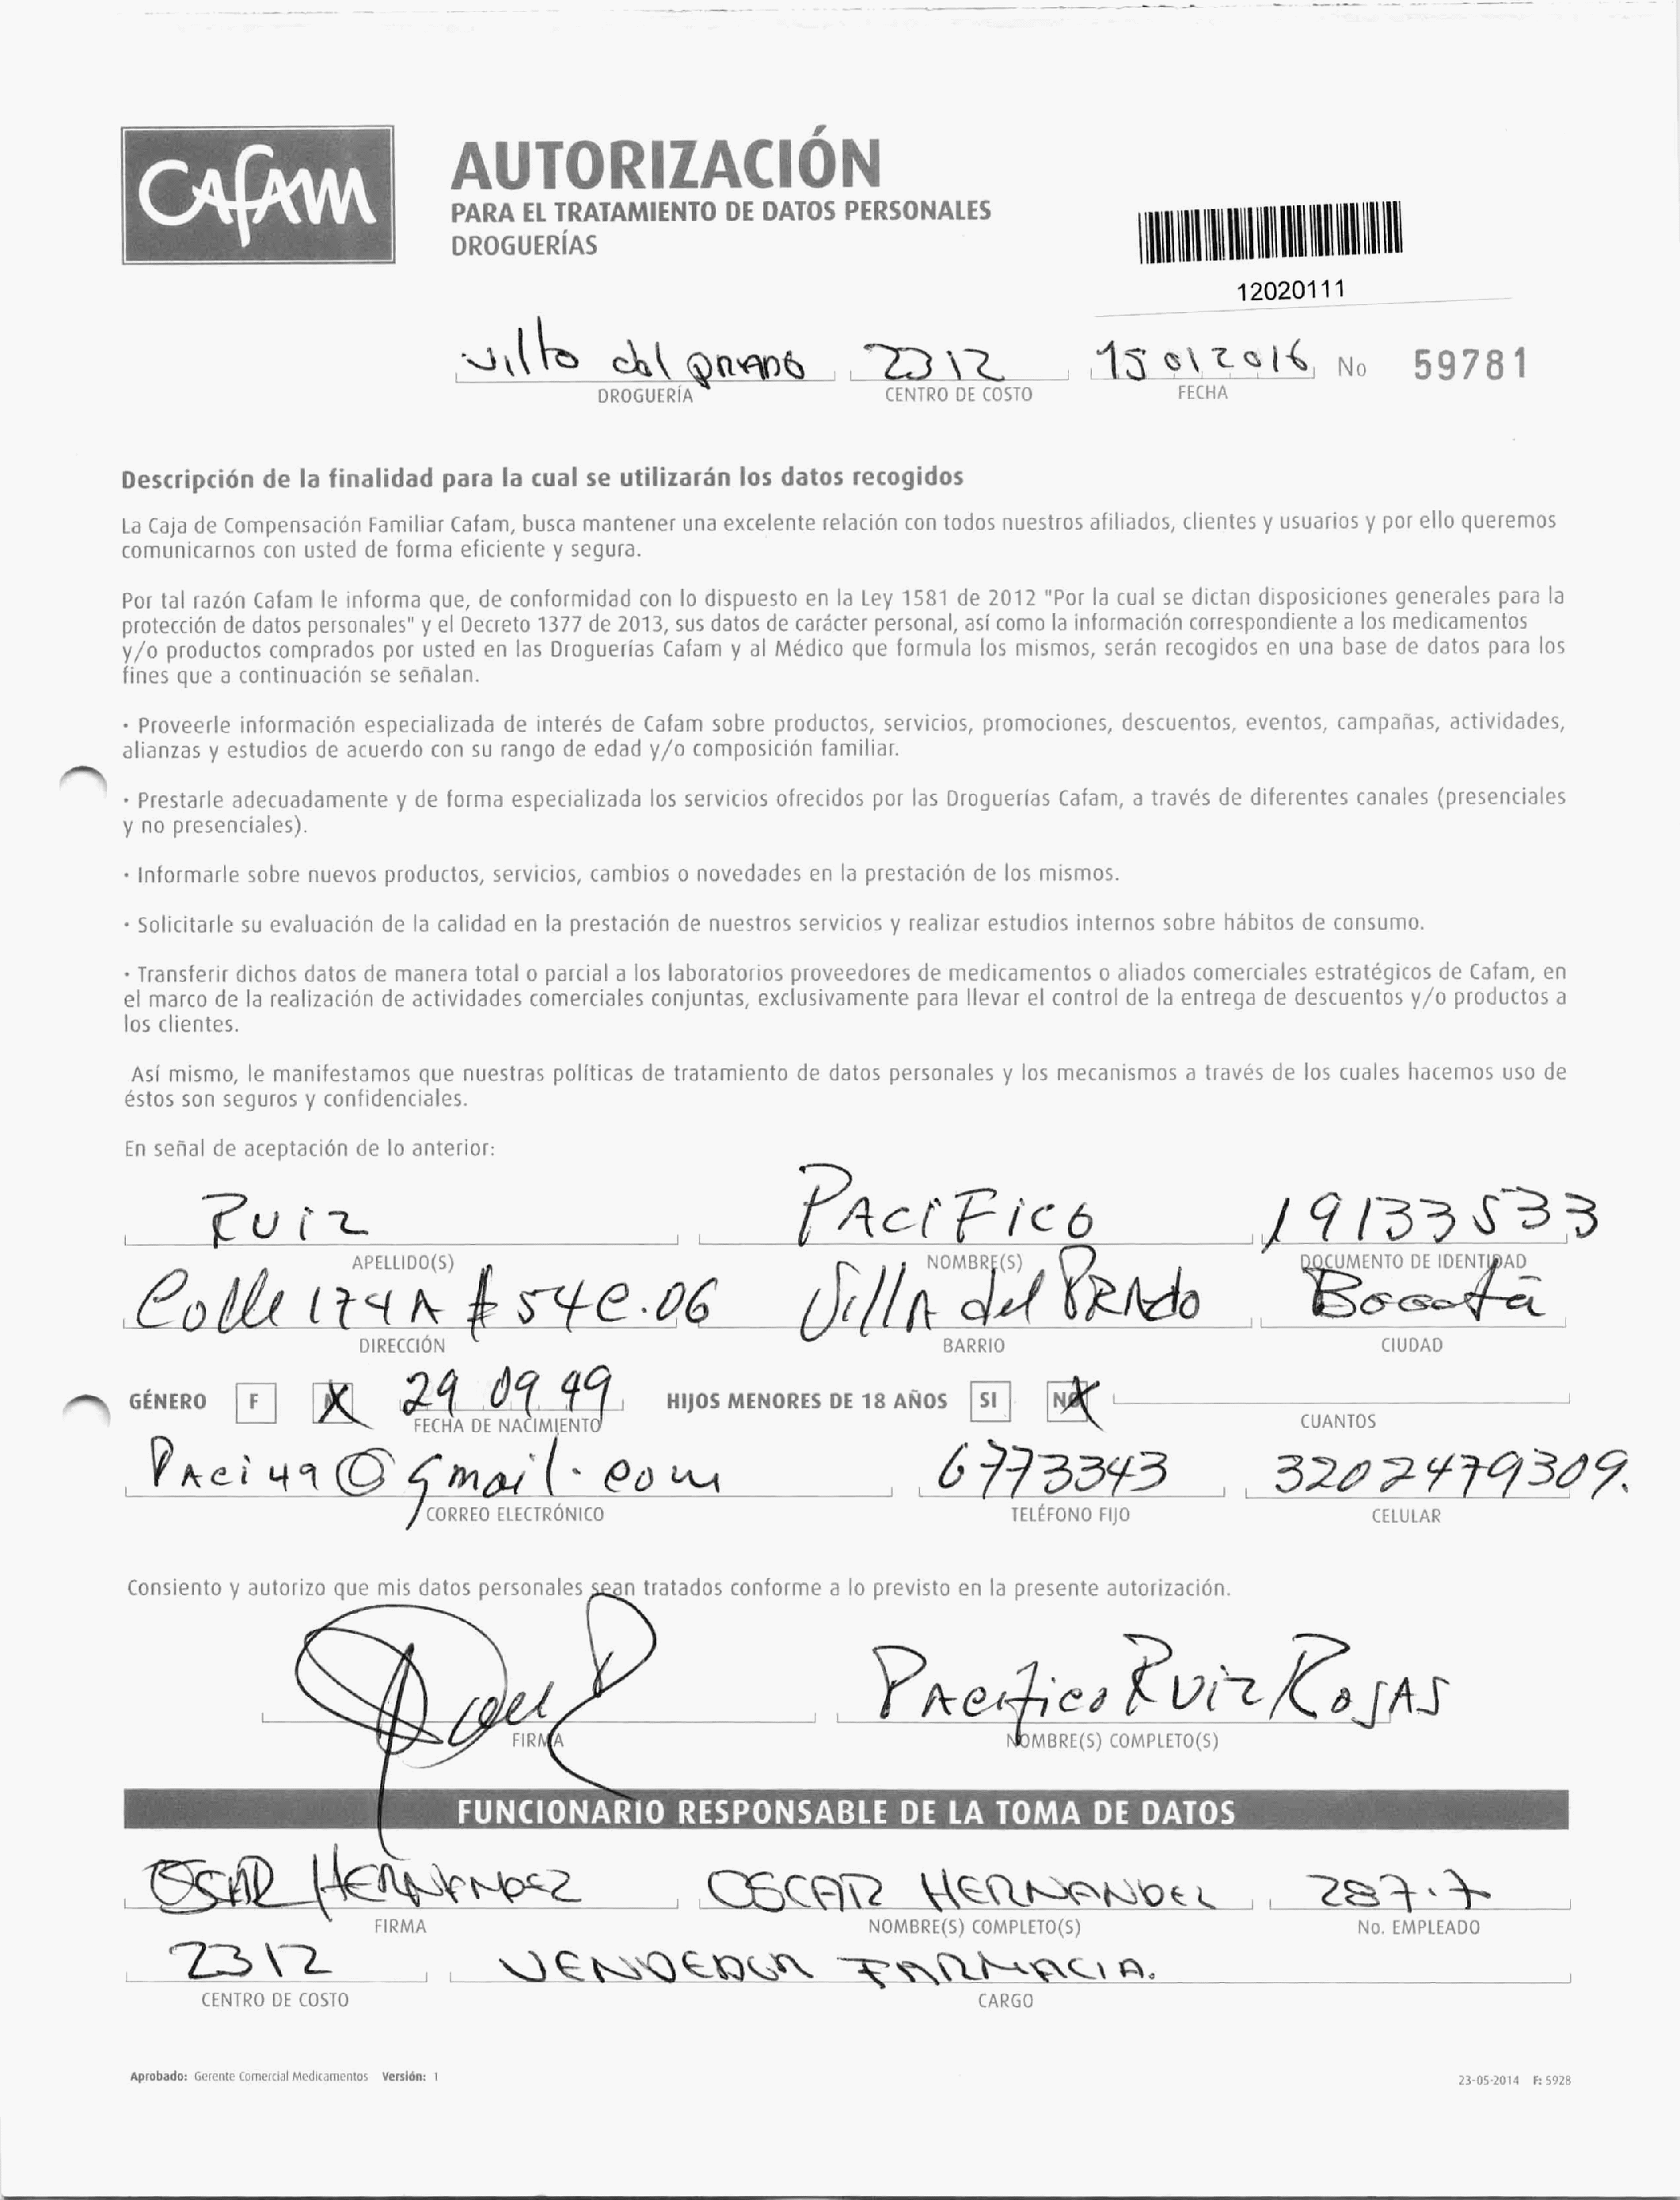 CAFAM
AUTORIZACIÓN
PARA EL TRATAMIENTO DE DATOS PERSONALES
DROGUERÍAS
12020111
Villa del prado 2312 15 01 2016 No 59781
DROGUERÍA CENTRO DE COSTO FECHA
Descripción de la finalidad para la cual se utilizarán los datos recogidos
La Caja de Compensación Familiar Cafam, busca mantener una excelente relación con todos nuestros afiliados, clientes y usuarios y por ello queremos
comunicarnos con usted de forma eficiente y segura.
Por tal razón Cafam le informa que, de conformidad con lo dispuesto en la Ley 1581 de 2012 "Por la cual se dictan disposiciones generales para la
protección de datos personales" y el Decreto 1377 de 2013, sus datos de carácter personal, así como la información correspondiente a los medicamentos
y/o productos comprados por usted en las Droguerías Cafam y al Médico que formula los mismos, serán recogidos en una base de datos para los
fines que a continuación se señalan.
· Proveerle información especializada de interés de Cafam sobre productos, servicios, promociones, descuentos, eventos, campañas, actividades,
alianzas y estudios de acuerdo con su rango de edad y/o composición familiar.
· Prestarle adecuadamente y de forma especializada los servicios ofrecidos por las Droguerías Cafam, a través de diferentes canales (presenciales
y no presenciales).
· Informarle sobre nuevos productos, servicios, cambios o novedades en la prestación de los mismos.
· Solicitarle su evaluación de la calidad en la prestación de nuestros servicios y realizar estudios internos sobre hábitos de consumo.
· Transferir dichos datos de manera total o parcial a los laboratorios proveedores de medicamentos o aliados comerciales estratégicos de Cafam, en
el marco de la realización de actividades comerciales conjuntas, exclusivamente para llevar el control de la entrega de descuentos y/o productos a
los clientes.
Así mismo, le manifestamos que nuestras políticas de tratamiento de datos personales y los mecanismos a través de los cuales hacemos uso de
éstos son seguros y confidenciales.
En señal de aceptación de lo anterior:
Ruiz PACIFICO 19133533
APELLIDO(S) NOMBRE(S) DOCUMENTO DE IDENTIDAD
Calle 174A # 54C.06 Villa del PRAdo Bogotá
DIRECCIÓN BARRIO CIUDAD
GÉNERO F X 29 09 49 HIJOS MENORES DE 18 AÑOS SI NO X
FECHA DE NACIMIENTO CUANTOS
PAci49@gmail.com 6773343 3202479309.
CORREO ELECTRÓNICO TELÉFONO FIJO CELULAR
Consiento y autorizo que mis datos personales sean tratados conforme a lo previsto en la presente autorización.
PAcifico Ruiz ROJAS
FIRMA NOMBRE(S) COMPLETO(S)
FUNCIONARIO RESPONSABLE DE LA TOMA DE DATOS
OSCAR HERNANDEZ OSCAR HERNANDEZ 287.7
FIRMA NOMBRE(S) COMPLETO(S) No. EMPLEADO
2312 VENDEDOR FARMACIA.
CENTRO DE COSTO CARGO
Aprobado: Gerente Comercial Medicamentos Versión: 1 23-05-2014 F: 5928